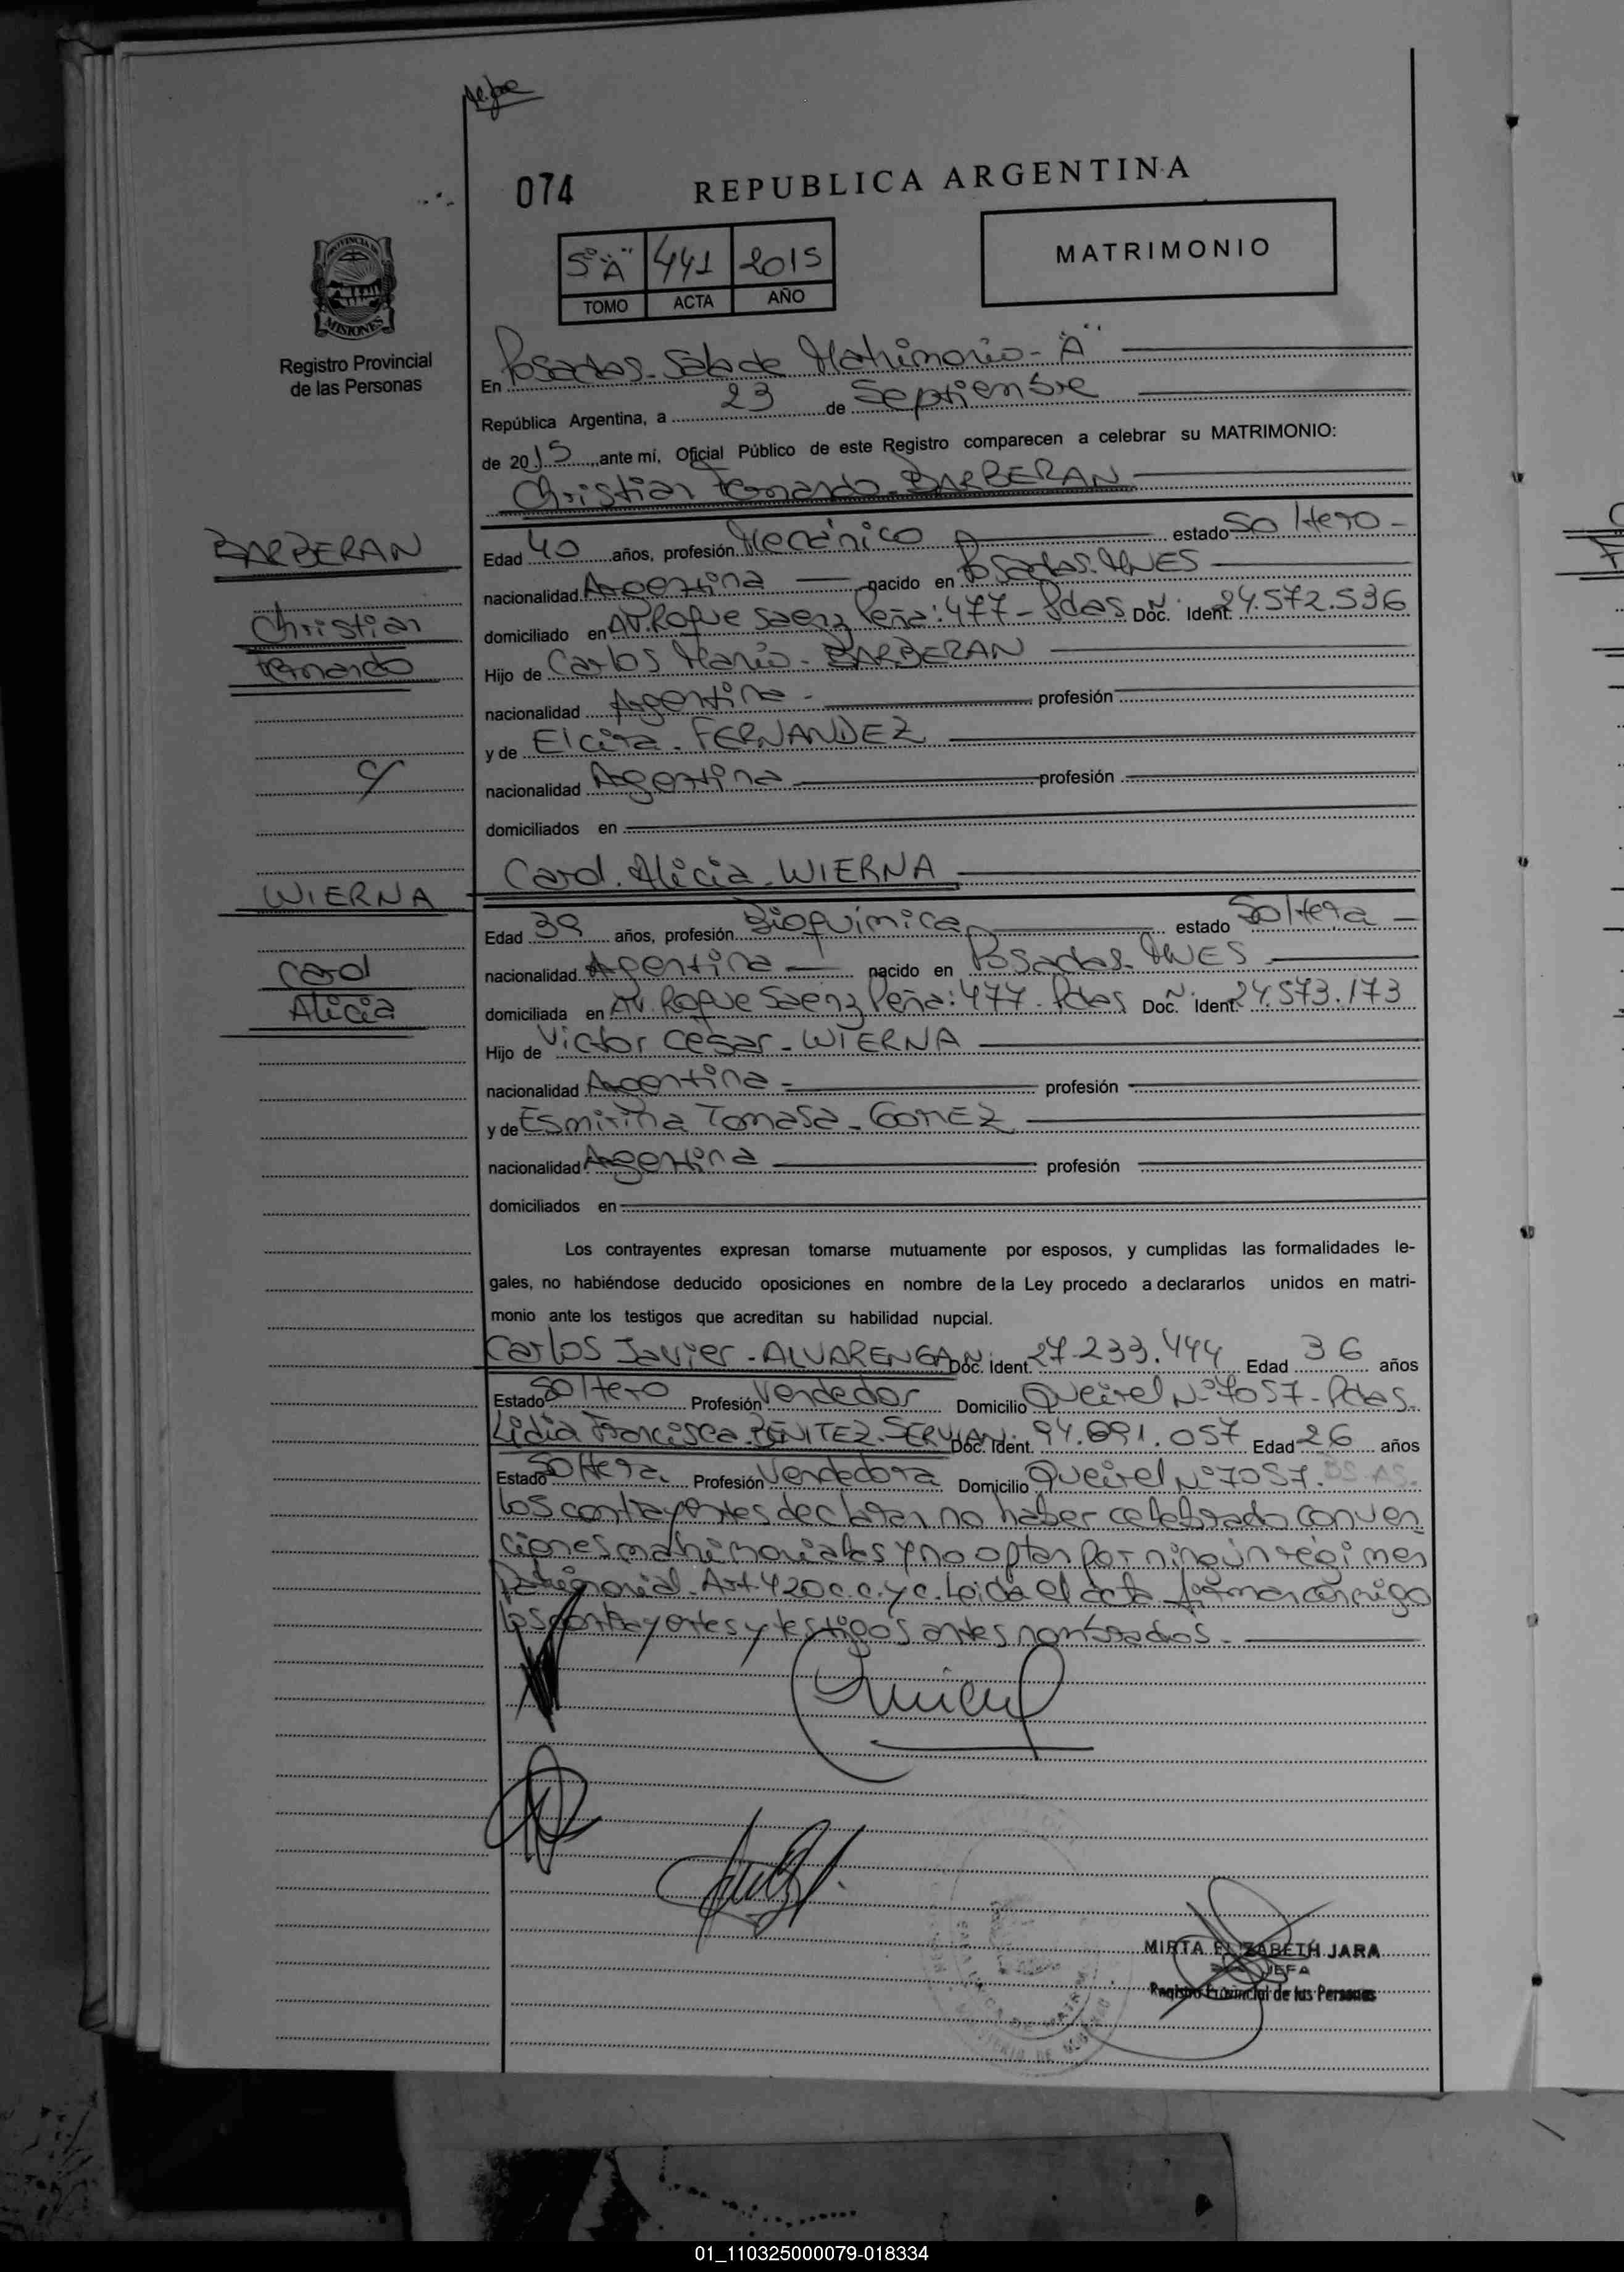 074
REPUBLICA ARGENTINA
5º "A" 441 2015
TOMO ACTA AÑO
MATRIMONIO
PROVINCIA DE
MISIONES
Registro Provincial
de las Personas
En Posadas - Sala de Matrimonio - "A"
República Argentina, a 23 de Septiembre
de 2015 ante mí, Oficial Público de este Registro comparecen a celebrar su MATRIMONIO:
Christian Fernando - BARBERAN
BARBERAN
Christian
Fernando
c/
WIERNA
Carol
Alicia
Edad 40 años, profesión Mecánico estado Soltero -
nacionalidad Argentina nacido en Posadas. MNES
domiciliado en Av. Roque Saenz Peña: 477 - Pdas Doc. Nº Ident. 24.572.536
Hijo de Carlos Mario - BARBERAN
nacionalidad Argentina - profesión
y de Elcira - FERNANDEZ
nacionalidad Argentina profesión
domiciliados en
Carol. Alicia - WIERNA
Edad 39 años, profesión Bioquímica estado Soltera -
nacionalidad Argentina nacido en Posadas - MNES
domiciliada en Av. Roque Saenz Peña: 477 - Pdas Doc. Nº Ident. 24.573.173
Hijo de Victor Cesar - WIERNA
nacionalidad Argentina - profesión
y de Esmirina Tomasa - GOMEZ
nacionalidad Argentina profesión
domiciliados en
Los contrayentes expresan tomarse mutuamente por esposos, y cumplidas las formalidades le-
gales, no habiéndose deducido oposiciones en nombre de la Ley procedo a declararlos unidos en matri-
monio ante los testigos que acreditan su habilidad nupcial.
Carlos Javier - ALVARENGA Doc. Ident. 27.233.444 Edad 36 años
Estado Soltero Profesión Vendedor Domicilio Queirel Nº 7057 - Pdas.
Lidia Francisca - BENITEZ - SERVIAN Doc. Ident. 94.691.057 Edad 26 años
Estado Soltera. Profesión Vendedora Domicilio Queirel Nº 7057.
los contrayentes declaran no haber celebrado conven
ciones matrimoniales y no optan por ningún régimen
patrimonial - Art. 420 c.c. y c. Leida el acta firman conmigo
los contrayentes y testigos antes nombrados.-
MIRTA ELIZABETH JARA
JEFA
Registro Provincial de las Personas
01_110325000079-018334